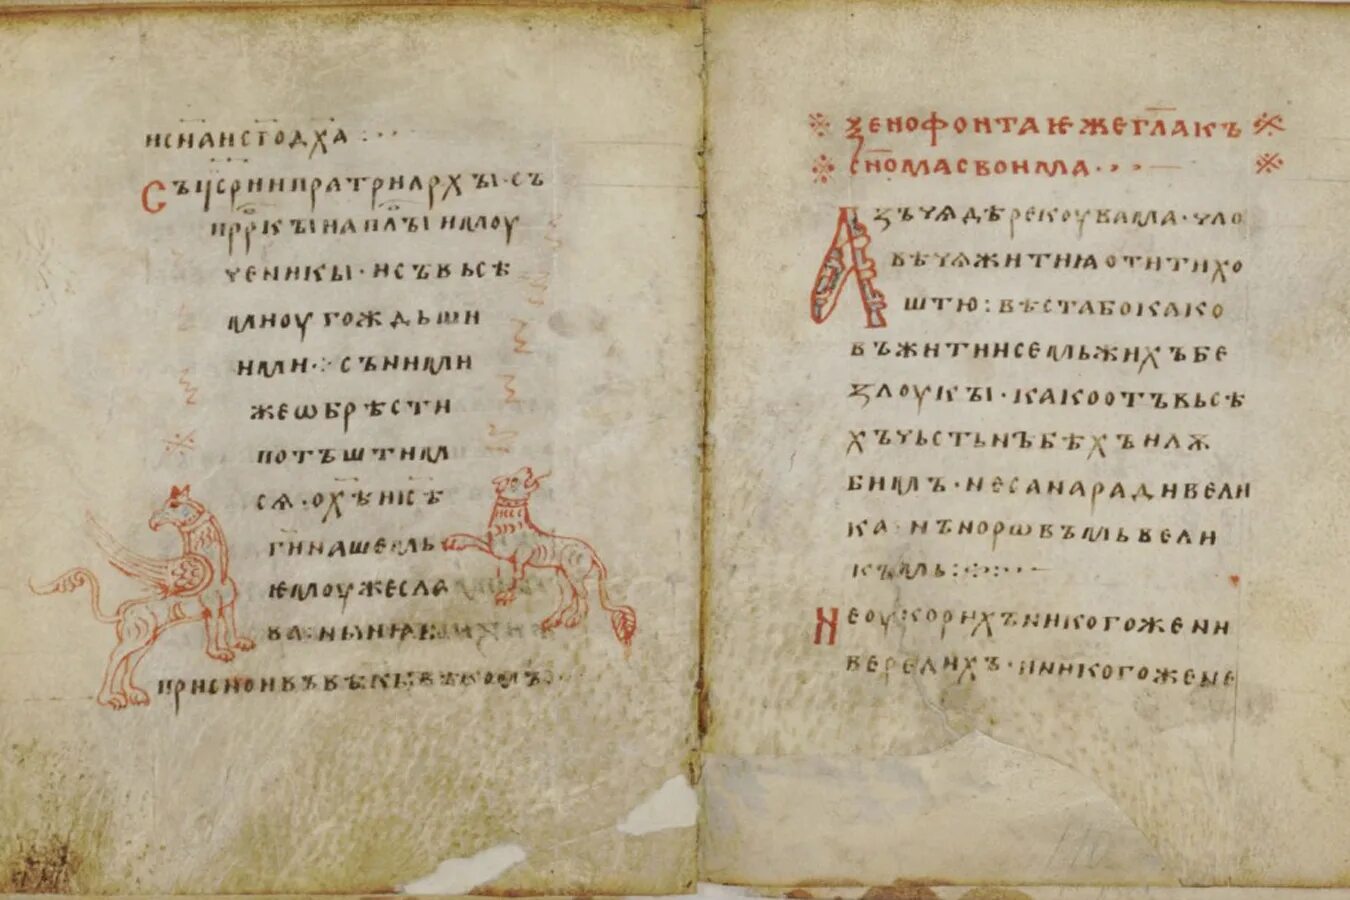 и сна и стоо дха : · ·
Съ црии и пратриархꙑ · съ
пррқꙑ и апл҃ꙑ и мо҄у
ченикꙑ · и съ вьсѣ
ми оугождьши
ими · : · съ ними
же ѡбрѣсти
потъштим
сѧ · о хѣ исѣ
ги нашемь
ѥмоу же сла
ва · нꙑнꙗ
присно и въ вѣкꙑ вѣкомъ · ·
Ꙁенофонта ѥже гла къ
снома своима · · · —
Азъ чѧдѣ рекоу вама · чло
вѣчѧ житиꙗ отити хо
штю : вѣста бо како
въ житии семь жихъ бе
злоукꙑ · како отъ вьсѣ
хъ чьстьнъ бѣхъ и лѫ
бимъ · не сана ради вели
ка · нъ норѡвъмь вели
къмь : · : · · · —
Не оукорихъ никогоже ни
вередихъ · ни никогоже не